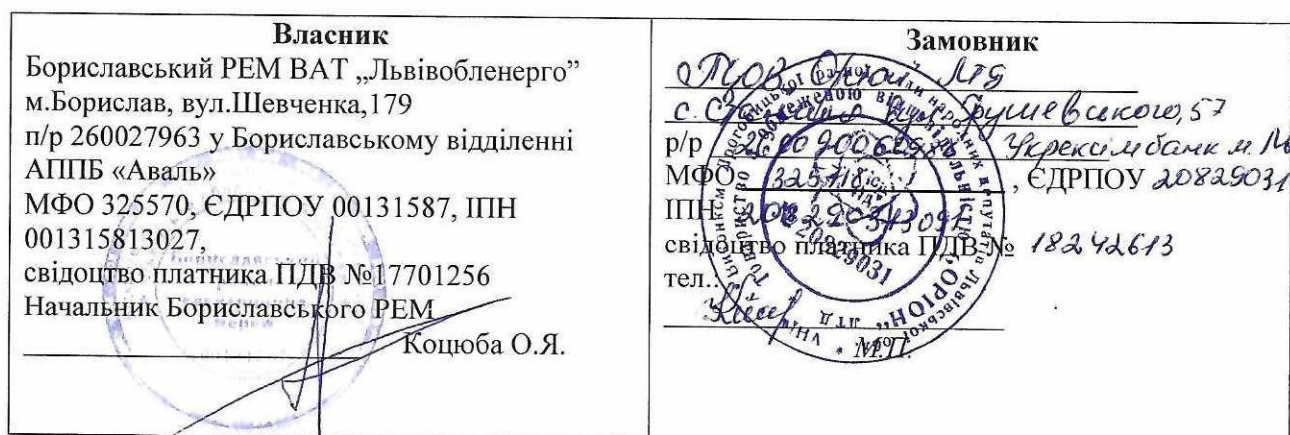 Власник
Бориславський РЕМ ВАТ „Львівобленерго”
м.Борислав, вул.Шевченка,179
п/р 260027963 у Бориславському відділенні
АППБ «Аваль»
МФО 325570, ЄДРПОУ 00131587, ІПН
001315813027,
свідоцтво платника ПДВ №17701256
Начальник Бориславського РЕМ
Коцюба О.Я.
Замовник
ТзОВ Оріон ЛТД
с. вул Грушевського, 57
р/р Укрексімбанк м. Ль
МФО 325718 , ЄДРПОУ 20829031
ІПН
свідоцтво платника ПДВ № 18242613
тел.:
М.П.
Товариство з обмеженою відповідальністю „ОРІОН" ЛТД
20829031